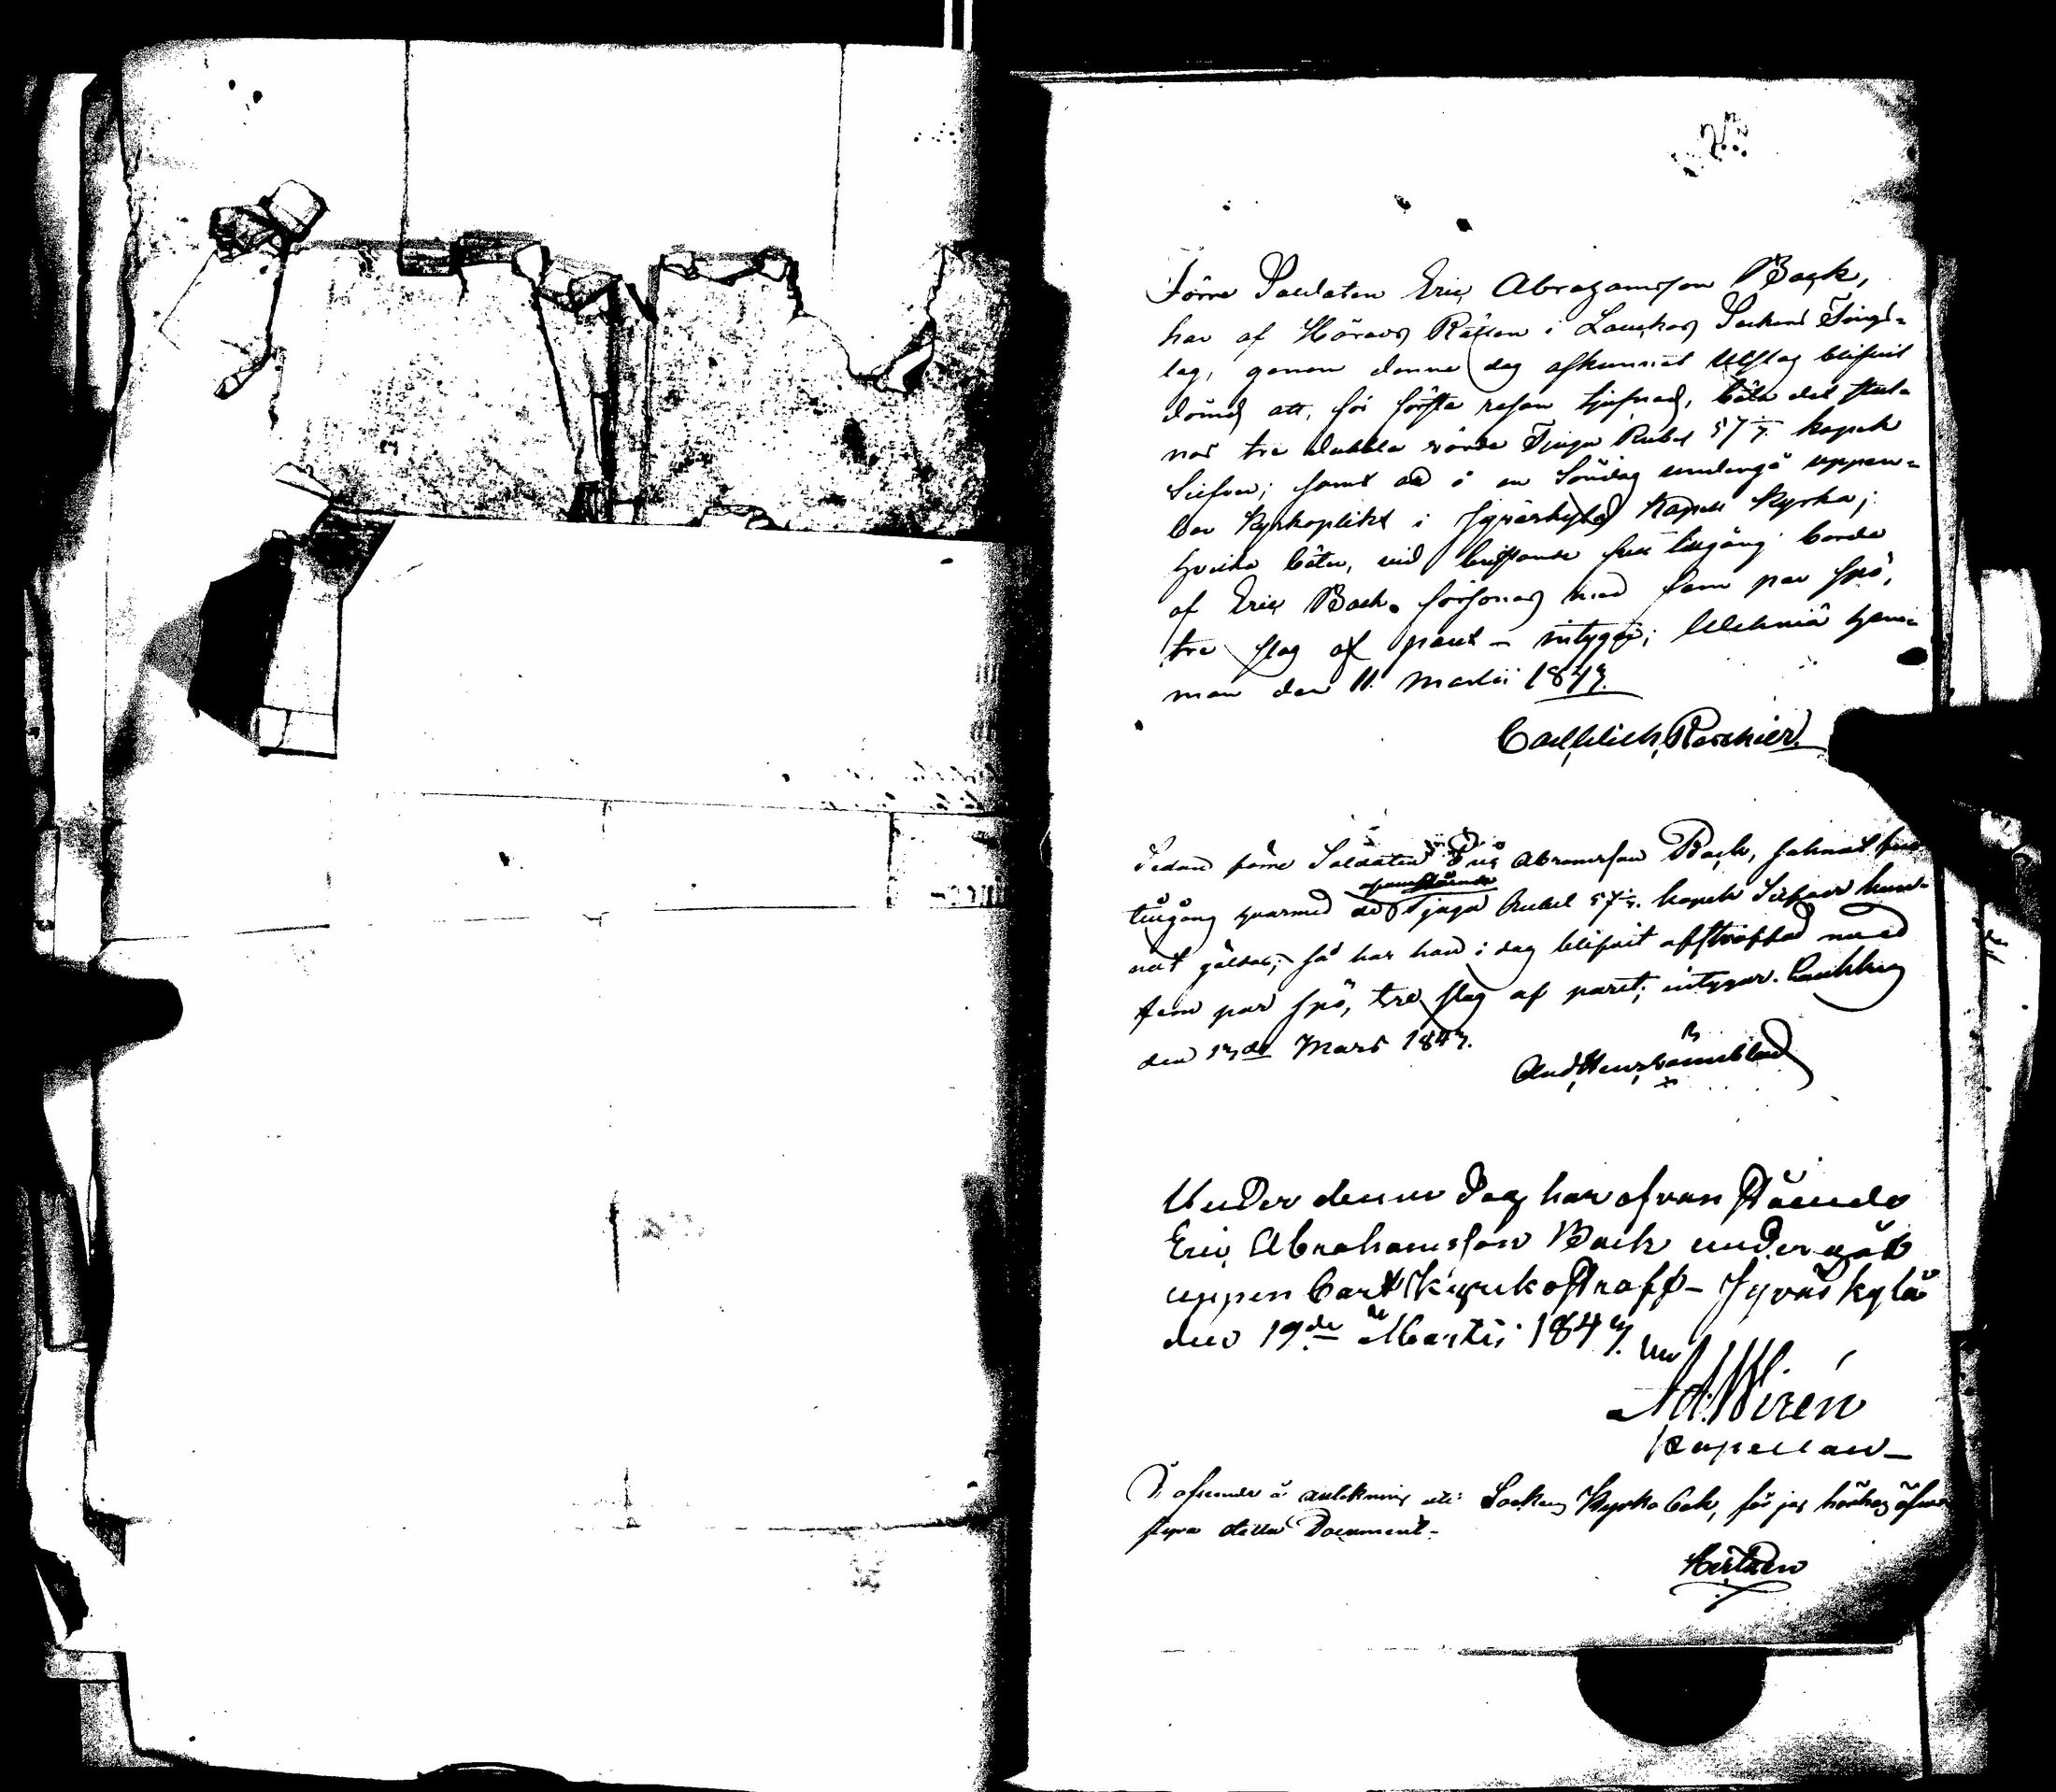 Förre Soldaten Eric Abrahamsson Back,
har af Härads Rätten i Laukas Sockens Tings-
lag, genom denne dag afkunnat Utslag blifvit
dömd att, för första resan tjufnad, böta det stul-
nas tre dubbla värde Tjugu Rubel 57 1/7 kopek
Silfver; samt at å en Söndag undergå uppen-
bar Kyrkoplikt i Jyväskylä Kapell Kyrka;
hvilka böter, vid bristande full tillgång borde
af Eric Back försonas med fem par spö,
tre slag af paret – intygar;
man den 11 Martii 1847.
Sedan förre Soldaten Eric Abramsson Back, saknat
ofvanstående
tillgång hvarmed de Tjugu Rubel 57 1/7 kopek Silfver kun-
nat gäldas; så har han i dag blifvit afstraffad med
fem par spö, tre slag af paret; intygar.
den 17de Mars 1847.
Under denne dag har ofvan stående
Eric Abrahamsson Back undergåt
uppenbart Kyrkostraff – Jyväskylä
den 19de Martii 1847.
Ad. Wirén
Kapellan –
Socken Kyrko Bok, får jag
detta Document –